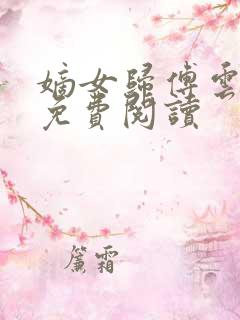 嫡女歸傅雲
免費閱讀
簾霜